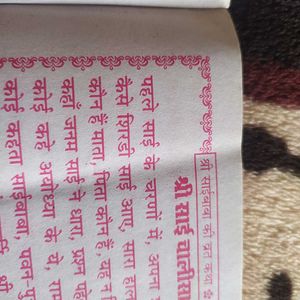 श्री साईंबाबा की व्रत कथा
श्री साईं चालीसा
पहले साईं के चरणों में, अपना
कैसे शिरडी साईं आए, सारा हाल
कौन है माता, पिता कौन है, यह न
कहाँ जनम साईं ने धारा, प्रश्न पहेली
कोई कहे अयोध्या के ये,
कोई कहता साईंबाबा, पवन-